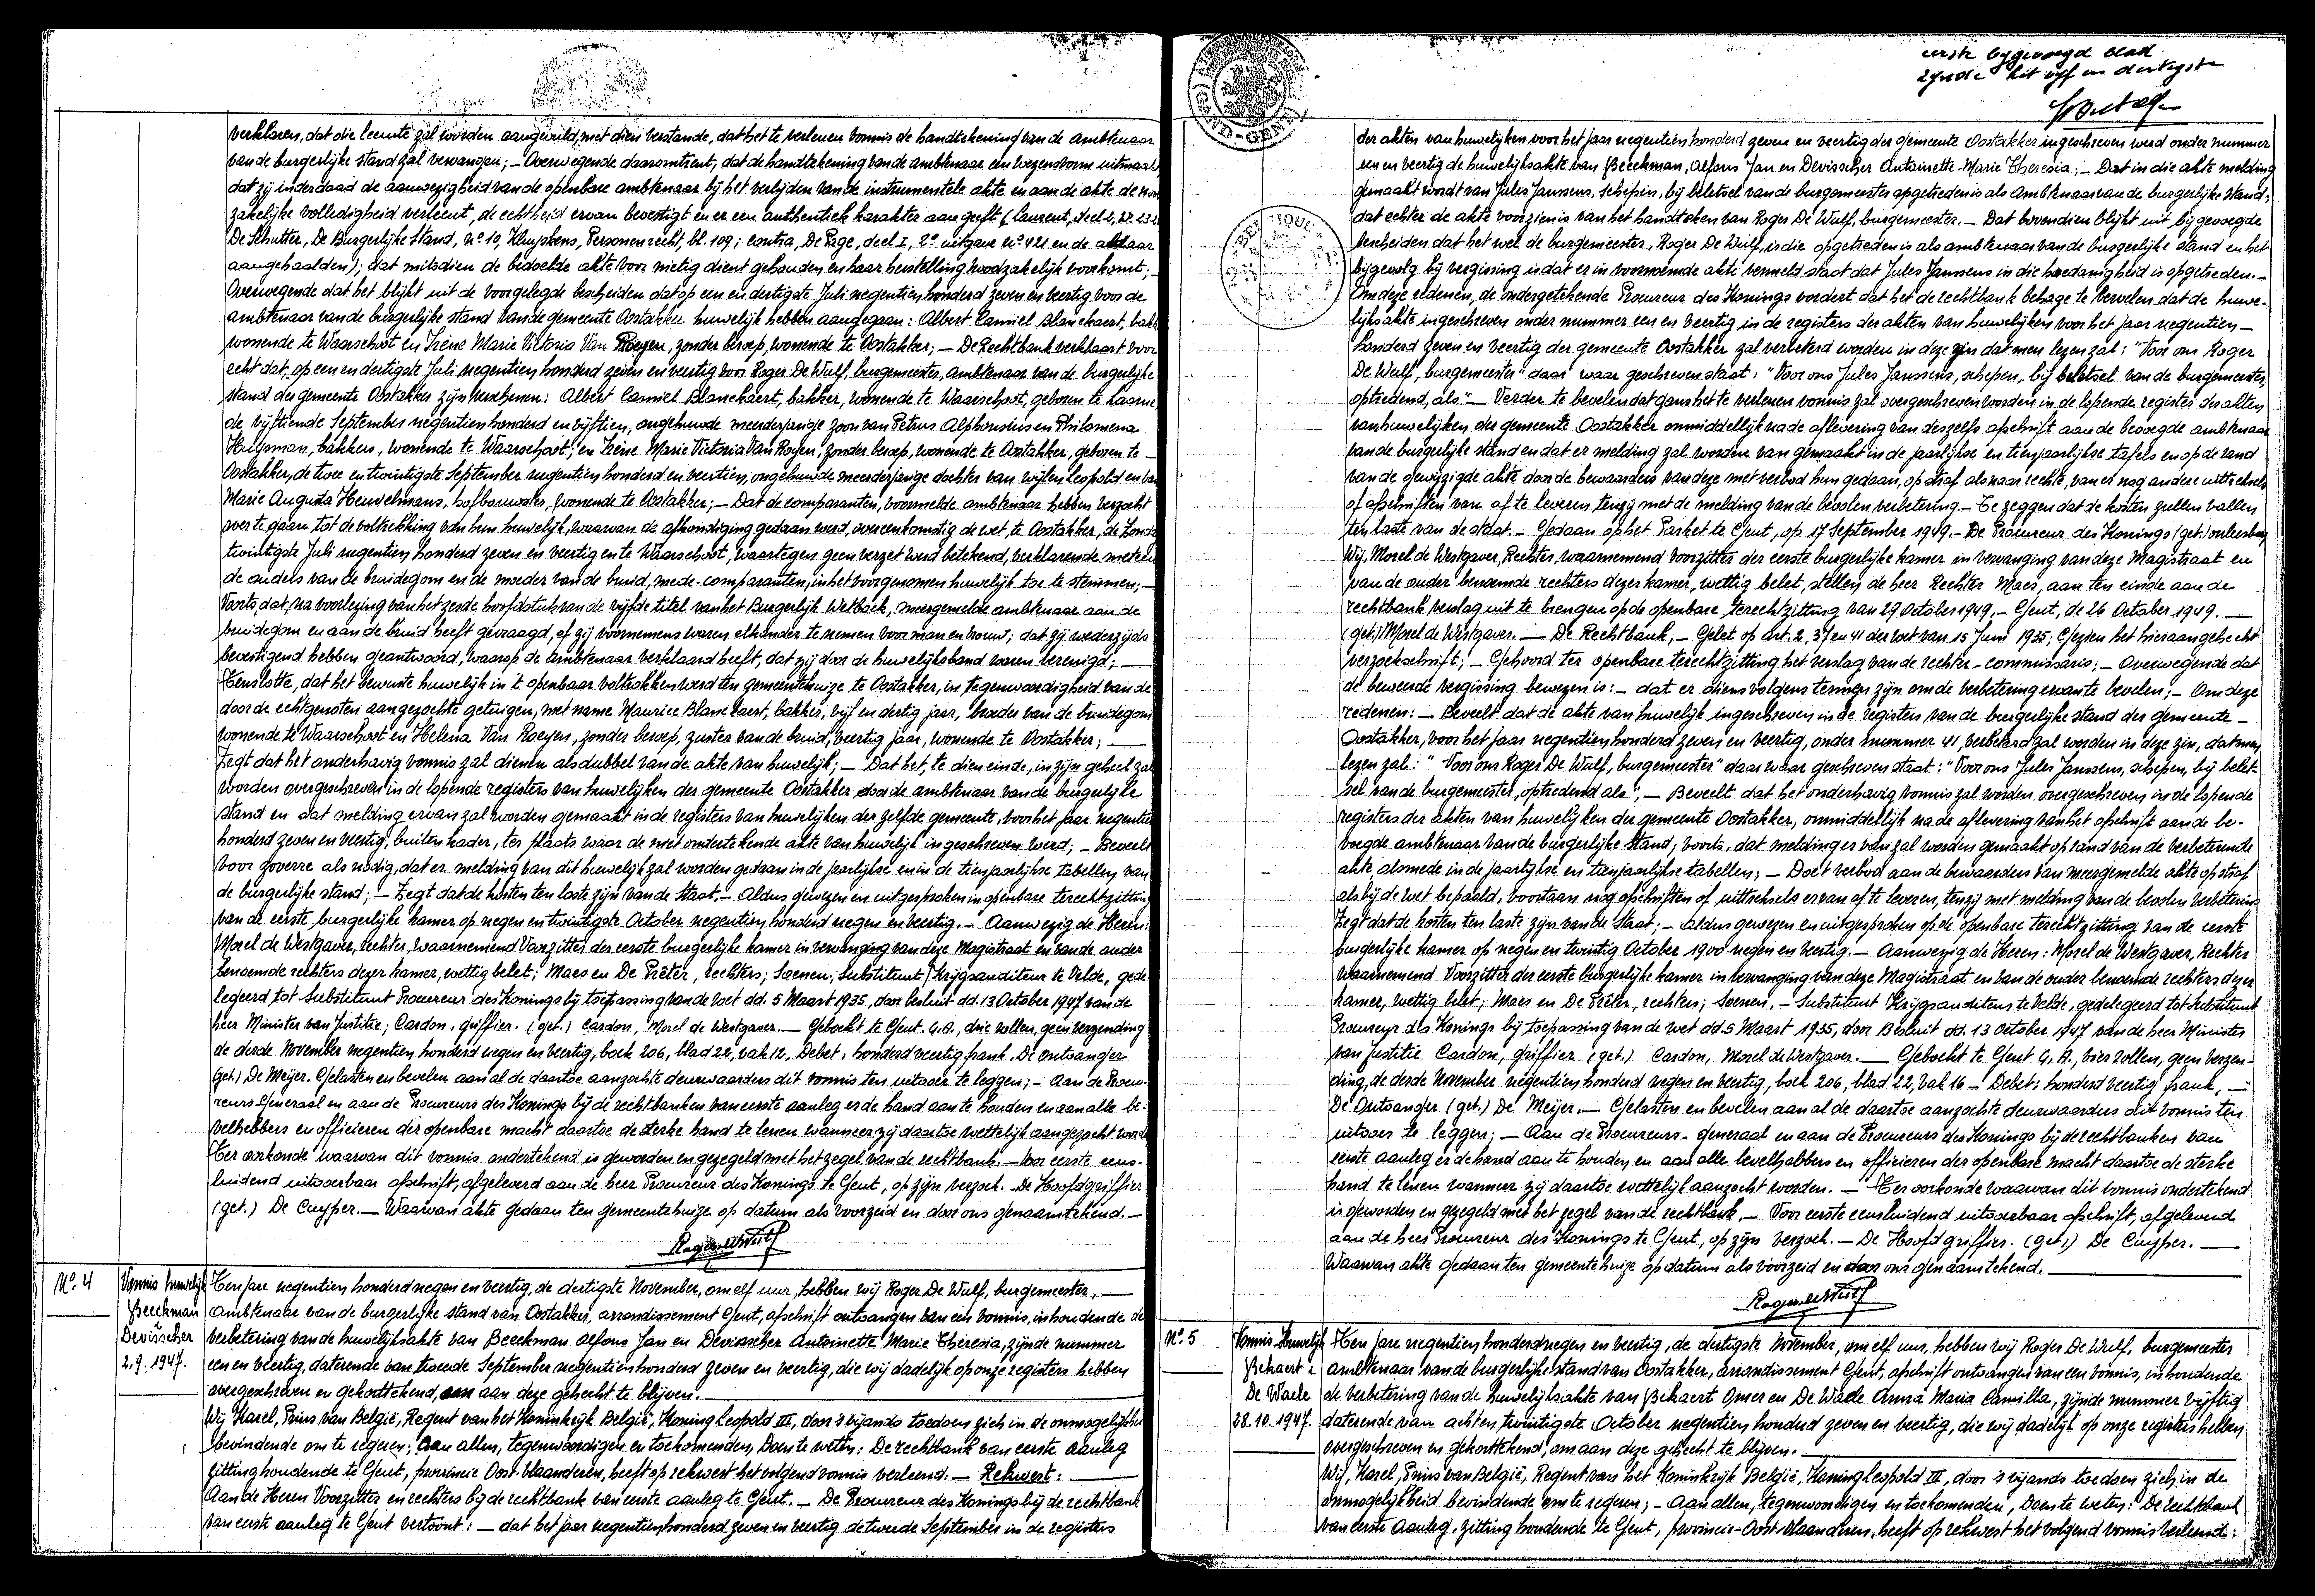 verklaren, dat die leemte zal worden aangevuld, met dien verstande, dat het te verlenen vonnis de handtekening van de ambtenaar
van de burgerlijke stand zal vervangen; — Overwegende daaromtrent, dat de handtekening van de ambtenaar een wezensvorm uitmaakt
dat zij inderdaad de aanwezigheid van de openbare ambtenaar bij het verlijden van de instrumentele akte en aan de akte de nood
zakelijke volledigheid verleent, de echtheid ervan bevestigt en er een authentiek karakter aan geeft (Laurent, deel 2,
De Schutter, De Burgerlijke Stand, nº 10, Kluyskens, Personenrecht, bl. 109; contra, De Page, deel I, 2e uitgave nº 421 en de aldaar
aangehaalden); dat mitsdien de bedoelde akte voor nietig dient gehouden en haar herstelling noodzakelijk voorkomt; —
Overwegende dat het blijkt uit de voorgelegde bescheiden dat op een en dertigste Juli negentien honderd zeven en veertig voor de
ambtenaar van de burgerlijke stand van de gemeente Oostakker huwelijk hebben aangegaan: Albert Camiel Blanckaert, bakk
wonende te Waarschoot en Irène Marie Victoria Van Royen, zonder beroep, wonende te Oostakker; — De Rechtbank verklaart voor
echt dat, op een en dertigste Juli negentien honderd zeven en veertig voor Roger De Wulf, burgemeester, ambtenaar van de burgerlijke
stand der gemeente Oostakker zijn verschenen: Albert Camiel Blanckaert, bakker, wonende te Waarschoot, geboren te Laarne
de vijftiende September negentien honderd en vijftien, ongehuwde meerderjarige zoon van Petrus Alphonsius en Philomena
Huysman, bakkers, wonende te Waarschoot; en Irène Marie Victoria Van Royen, zonder beroep, wonende te Oostakker, geboren te —
Oostakker, de twee en twintigste September negentien honderd en veertien, ongehuwde meerderjarige dochter van wijlen Leopold en van
Marie Augusta Heuvelmans, hofbouwster, wonende te Oostakker; — Dat de comparanten, voormelde ambtenaar hebben verzocht
over te gaan, tot de voltrekking van hun huwelijk, waarvan de afkondiging gedaan werd, overeenkomstig de wet, te Oostakker, de Zondag
twintigste Juli negentien honderd zeven en veertig en te Waarschoot, waartegen geen verzet werd betekend, verklarende meteen
de ouders van de bruidegom en de moeder van de bruid, mede-comparanten, in het voorgenomen huwelijk toe te stemmen; —
Voorts dat, na voorlezing van het zesde hoofdstuk van de vijfde titel van het Burgerlijk Wetboek, meergemelde ambtenaar aan de
bruidegom en aan de bruid heeft gevraagd, of zij voornemens waren elkander te nemen voor man en vrouw; dat zij wederzijds
bevestigend hebben geantwoord, waarop de ambtenaar verklaard heeft, dat zij door de huwelijksband waren verenigd; —
Tenslotte, dat het bewuste huwelijk in 't openbaar voltrokken werd ten gemeentehuize te Oostakker, in tegenwoordigheid van de
door de echtgenoten aangezochte getuigen, met name Maurice Blanckaert, bakker, vijf en dertig jaar, broeder van de bruidegom
wonende te Waarschoot en Helena Van Roeyen, zonder beroep, zuster van de bruid, veertig jaar, wonende te Oostakker; —
Zegt dat het onderhavig vonnis zal dienen als dubbel van de akte van huwelijk; — Dat het, te dien einde, in zijn geheel zal
worden overgeschreven in de lopende registers van huwelijken der gemeente Oostakker door de ambtenaar van de burgerlijke
stand en dat melding ervan zal worden gemaakt in de registers van huwelijken der zelfde gemeente, voor het jaar negentien
honderd zeven en veertig, buiten kader, ter plaats waar de niet ondertekende akte van huwelijk ingeschreven werd; — Beveelt
voor zoverre als nodig, dat er melding van dit huwelijk zal worden gedaan in de jaarlijkse en in de tienjaarlijkse tabellen van
de burgerlijke stand; — Zegt dat de kosten ten laste zijn van de Staat. — Aldus gewezen en uitgesproken in openbare terechtzitting
van de eerste burgerlijke kamer op negen en twintigste October negentien honderd negen en veertig. — Aanwezig de Heren:
Morel de Westgaver, rechter, waarnemend Voorzitter der eerste burgerlijke kamer in vervanging van deze Magistraat en van de ouder
benoemde rechters dezer kamer, wettig belet; Maes en De Prêter, rechters; Soenen, Substituut Krijgsauditeur te Velde, gede-
legeerd tot Substituut Procureur des Konings bij toepassing van de wet dd. 5 Maart 1935, door besluit dd. 13 October 1947 van de
heer Minister van Justitie; Cardon, griffier. (get.) Cardon, Morel de Westgaver. — Geboekt te Gent. G.A., drie rollen, geen verzending
de derde November negentien honderd negen en veertig, boek 206, blad 22, vak 12. Debet: honderd veertig frank. De ontvanger
(get.) De Meijer. Gelasten en bevelen aan al de daartoe aanzochte deurwaarders dit vonnis ten uitvoer te leggen; — Aan de Procu-
reurs-Generaal en aan de Procureurs des Konings bij de rechtbanken van eerste aanleg er de hand aan te houden en aan alle be-
velhebbers en officieren der openbare macht daartoe de sterke hand te lenen wanneer zij daartoe wettelijk aangezocht worden
Ter oorkonde waarvan dit vonnis ondertekend is geworden en gezegeld met het zegel van de rechtbank. — Voor eerste eens-
luidend uitvoerbaar afschrift, afgeleverd aan de heer Procureur des Konings te Gent, op zijn verzoek. De Hoofdgriffier
(get.) De Cuyper. — Waarvan akte gedaan ten gemeentehuize op datum als voorzeid en door ons genaamtekend. —
Roger De Wulf
Nº. 4
Vonnis huwelijk
Beeckman
Devisscher
2.9.1947.
Ten jare negentien honderd negen en veertig, de dertigste November, om elf uur, hebben wij Roger De Wulf, burgemeester, —
Ambtenaar van de burgerlijke stand van Oostakker, arrondissement Gent, afschrift ontvangen van een vonnis, inhoudende de
verbetering van de huwelijksakte van Beeckman Alfons Jan en Devisscher Antoinette Marie Theresia, zijnde nummer
een en veertig, daterende van tweede September negentien honderd zeven en veertig, die wij dadelijk op onze registers hebben
overgeschreven en gekorttekend, om aan deze gehecht te blijven.
Wij Karel, Prins van België, Regent van het Koninkrijk België, Koning Leopold III, door 's vijands toedoen zich in de onmogelijkheid
bevindende om te regeren; Aan allen, tegenwoordigen en toekomenden, Doen te weten: De rechtbank van eerste aanleg
zitting houdende te Gent, provincie Oost-Vlaanderen, heeft op rekwest het volgend vonnis verleend: — Rekwest: —
Aan de Heren Voorzitter en rechters bij de rechtbank van eerste aanleg te Gent. — De Procureur des Konings bij de rechtbank
van eerste aanleg te Gent vertoont: — dat het jaar negentienhonderd zeven en veertig de tweede September in de registers
eerste bijgevoegd blad
zijnde het vijf en dertigste
der akten van huwelijken voor het jaar negentien honderd zeven en veertig der gemeente Oostakker ingeschreven werd onder nummer
een en veertig de huwelijksakte van Beeckman, Alfons Jan en Devisscher Antoinette-Marie Theresia; — Dat in die akte melding
gemaakt wordt van Jules Janssens, schepen, bij beletsel van de burgemeester opgetreden is als ambtenaar van de burgerlijke stand;
dat echter de akte voorzien is van het handteken van Roger De Wulf, burgemeester. — Dat bovendien blijkt uit bijgevoegde
bescheiden dat het wel de burgemeester, Roger De Wulf, is die opgetreden is als ambtenaar van de burgerlijke stand en het
bijgevolg bij vergissing is dat er in voornoemde akte vermeld staat dat Jules Janssens in die hoedanigheid is opgetreden. —
Om deze redenen, de ondergetekende Procureur des Konings vordert dat het de rechtbank behage te bevelen dat de huwe-
lijksakte ingeschreven onder nummer een en veertig in de registers der akten van huwelijken voor het jaar negentien —
honderd zeven en veertig der gemeente Oostakker zal verbeterd worden in deze zin dat men lezen zal: "Voor ons Roger
De Wulf, burgemeester" daar waar geschreven staat: "Voor ons Jules Janssens, schepen, bij beletsel van de burgemeester,
optredend, als" — Verder te bevelen dat gans het te verlenen vonnis zal overgeschreven worden in de lopende register der akten
van huwelijken, der gemeente Oostakker onmiddellijk na de aflevering van deszelfs afschrift aan de bevoegde ambtenaar
van de burgerlijke stand en dat er melding zal worden van gemaakt in de jaarlijkse en tienjaarlijkse tafels en op de rand
van de gewijzigde akte door de bewaarders van deze met verbod hun gedaan, op straf als naar rechte, van er nog andere uittreksels
of afschriften van af te leveren tenzij met de melding van de bevolen verbetering. — Te zeggen dat de kosten zullen vallen
ten laste van de Staat. — Gedaan op het Parket te Gent, op 17 September 1949. — De Procureur des Konings (get.)
Wij, Morel de Westgaver, Rechter, waarnemend voorzitter der eerste burgerlijke kamer in vervanging van deze Magistraat en
van de ouder benoemde rechters dezer kamer, wettig belet, stellen de heer Rechter Maes, aan ten einde aan de
rechtbank verslag uit te brengen op de openbare terechtzitting van 29 October 1949. — Gent, de 26 October 1949. —
(get.) Morel de Westgaver. — De Rechtbank, — Gelet op art. 2, 37 en 41 der wet van 15 Juni 1935; Gezien het hieraangehecht
verzoekschrift; — Gehoord ter openbare terechtzitting het verslag van de rechter-commissaris; — Overwegende dat
de beweerde vergissing bewezen is: — dat er diensvolgens termen zijn om de verbetering ervan te bevelen; — Om deze
redenen: — Beveelt dat de akte van huwelijk ingeschreven in de registers van de burgerlijke stand der gemeente —
Oostakker, voor het jaar negentien honderd zeven en veertig, onder nummer 41, verbeterd zal worden in deze zin, dat men
lezen zal: "Voor ons Roger De Wulf, burgemeester" daar waar geschreven staat: "Voor ons Jules Janssens, schepen, bij belet-
sel van de burgemeester, optredend als"; — Beveelt dat het onderhavig vonnis zal worden overgeschreven in de lopende
registers der akten van huwelijken der gemeente Oostakker, onmiddellijk na de aflevering van het afschrift aan de be-
voegde ambtenaar van de burgerlijke stand; voorts, dat melding ervan zal worden gemaakt op rand van de verbeterende
akte alsmede in de jaarlijkse en tienjaarlijkse tabellen; — Doet verbod aan de bewaarders van meergemelde akte op straf
als bij de wet bepaald, voortaan nog afschriften of uittreksels ervan af te leveren, tenzij met melding van de bevolen verbetering
Zegt dat de kosten ten laste zijn van de Staat; — Aldus gewezen en uitgesproken op de openbare terechtzitting van de eerste
burgerlijke kamer op negen en twintig October 1900 negen en veertig. — Aanwezig de Heren: Morel de Westgaver, Rechter
waarnemend Voorzitter der eerste burgerlijke kamer in vervanging van deze Magistraat en van de ouder benoemde rechters dezer
kamer, wettig belet; Maes en De Prêter, rechters; Soenen, — Substituut Krijgsauditeur te Velde, gedelegeerd tot Substituut
Procureur des Konings bij toepassing van de wet dd. 5 Maart 1935, door Besluit dd. 13 October 1947 van de heer Minister
van Justitie Cardon, griffier (get.) Cardon, Morel de Westgaver. — Geboekt te Gent G.A. vier rollen, geen verzen-
ding, de derde November negentien honderd negen en veertig, boek 206, blad 22, vak 16 — Debet: honderd veertig frank, —
De Ontvanger (get.) De Meijer. — Gelasten en bevelen aan al de daartoe aanzochte deurwaarders dit vonnis ten
uitvoer te leggen; — Aan de Procureurs-generaal en aan de Procureurs des Konings bij de rechtbanken van
eerste aanleg er de hand aan te houden en aan alle bevelhebbers en officieren der openbare macht daartoe de sterke
hand te lenen wanneer zij daartoe wettelijk aanzocht worden. — Ter oorkonde waarvan dit vonnis ondertekend
is geworden en gezegeld met het zegel van de rechtbank. — Voor eerste eensluidend uitvoerbaar afschrift, afgeleverd
aan de heer Procureur des Konings te Gent, op zijn verzoek. — De Hoofdgriffier. (get.) De Cuyper. —
Waarvan akte gedaan ten gemeentehuize op datum als voorzeid en door ons genaamtekend.
Roger De Wulf
Nº. 5
Vonnis Huwelijk
Bekaert
De Waele
28.10.1947.
Ten jare negentien honderd negen en veertig, de dertigste November, om elf uur, hebben wij Roger De Wulf, burgemeester
ambtenaar van de burgerlijke stand van Oostakker, arrondissement Gent, afschrift ontvangen van een vonnis, inhoudende
de verbetering van de huwelijksakte van Bekaert Omer en De Waele Anna Maria Camilla, zijnde nummer vijftig
daterende van achten twintigste October negentien honderd zeven en veertig, die wij dadelijk op onze registers hebben
overgeschreven en gekorttekend, om aan deze gehecht te blijven.
Wij, Karel, Prins van België, Regent van het Koninkrijk België, Koning Leopold III, door 's vijands toedoen zich in de
onmogelijkheid bevindende om te regeren; — Aan allen, tegenwoordigen en toekomenden, Doen te weten: De rechtbank
van eerste aanleg, zitting houdende te Gent, provincie-Oost-Vlaanderen, heeft op rekwest het volgend vonnis verleend: